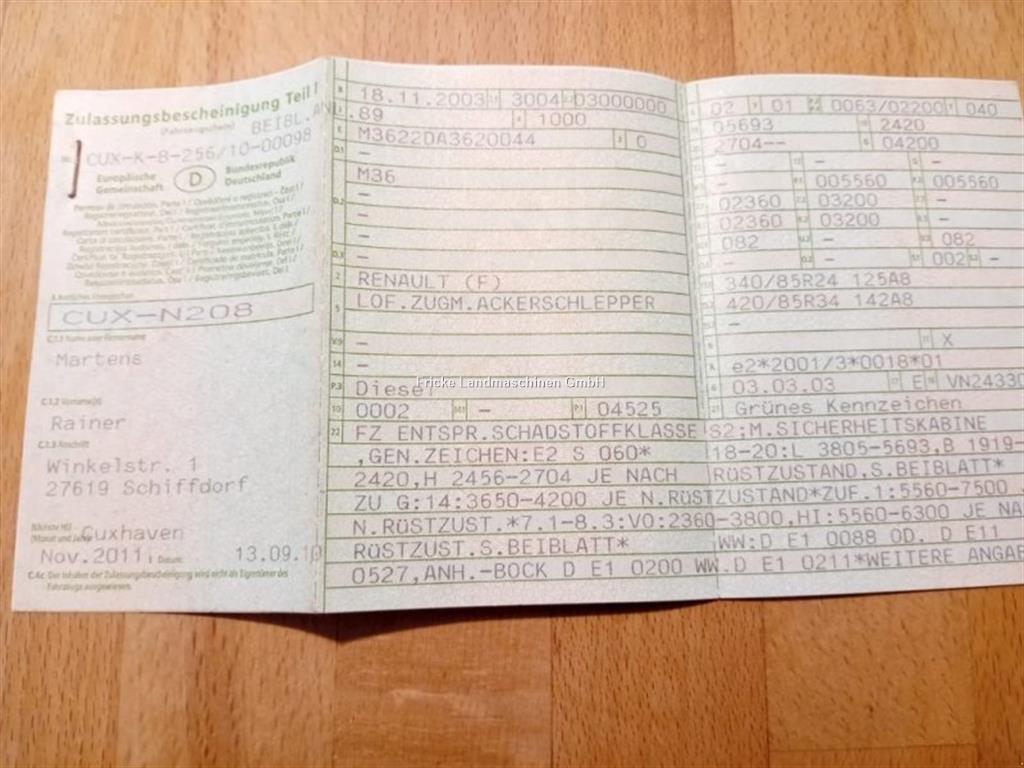 Zulassungsbescheinigung Teil I
(Fahrzeugschein) BEIBL.AN
Nr. CUX-K-8-256/10-00098
Europäische Gemeinschaft D Bundesrepublik Deutschland
CUX-N208
C.1.1 Name oder Firmenname
Martens
C.1.2 Vorname(n)
Rainer
C.1.3 Anschrift
Winkelstr. 1
27619 Schiffdorf
Nächste HU
(Monat und Jahr) Cuxhaven
Nov.2011, Datum: 13.09.10
C.4c Der Inhaber der Zulassungsbescheinigung wird nicht als Eigentümer des
Fahrzeugs ausgewiesen.
B 18.11.2003 2.1 3004 2.2 D3000000
J 89 4 1000
E M3622DA3620044 3 0
D.1 –
M36
–
D.2 –
–
–
D.3 –
2 RENAULT (F)
5 LOF.ZUGM.ACKERSCHLEPPER
V.9 –
14 –
P.3 Diesel
10 0002 14.1 – P.1 04525
22 FZ ENTSPR.SCHADSTOFFKLASSE S2:M.SICHERHEITSKABINE
,GEN.ZEICHEN:E2 S 060* 18-20:L 3805-5693,B 1919-
2420,H 2456-2704 JE NACH RüSTZUSTAND.S.BEIBLATT*
ZU G:14:3650-4200 JE N.RüSTZUSTAND*ZUF.1:5560-7500
N.RüSTZUST.*7.1-8.3:VO:2360-3800,HI:5560-6300 JE NA
RüSTZUST.S.BEIBLATT* WW:D E1 0088 OD. D E11
0527,ANH.-BOCK D E1 0200 WW.D E1 0211*WEITERE ANGAB
02 01 0063/02200 040
05693 2420
2704-- 04200
– –
– 005560 005560
02360 03200 –
02360 03200 –
082 – 082
– – 002 –
340/85R24 125A8
420/85R34 142A8
–
– X
e2*2001/3*0018*01
03.03.03 E VN24330
Grünes Kennzeichen
Fricke Landmaschinen GmbH